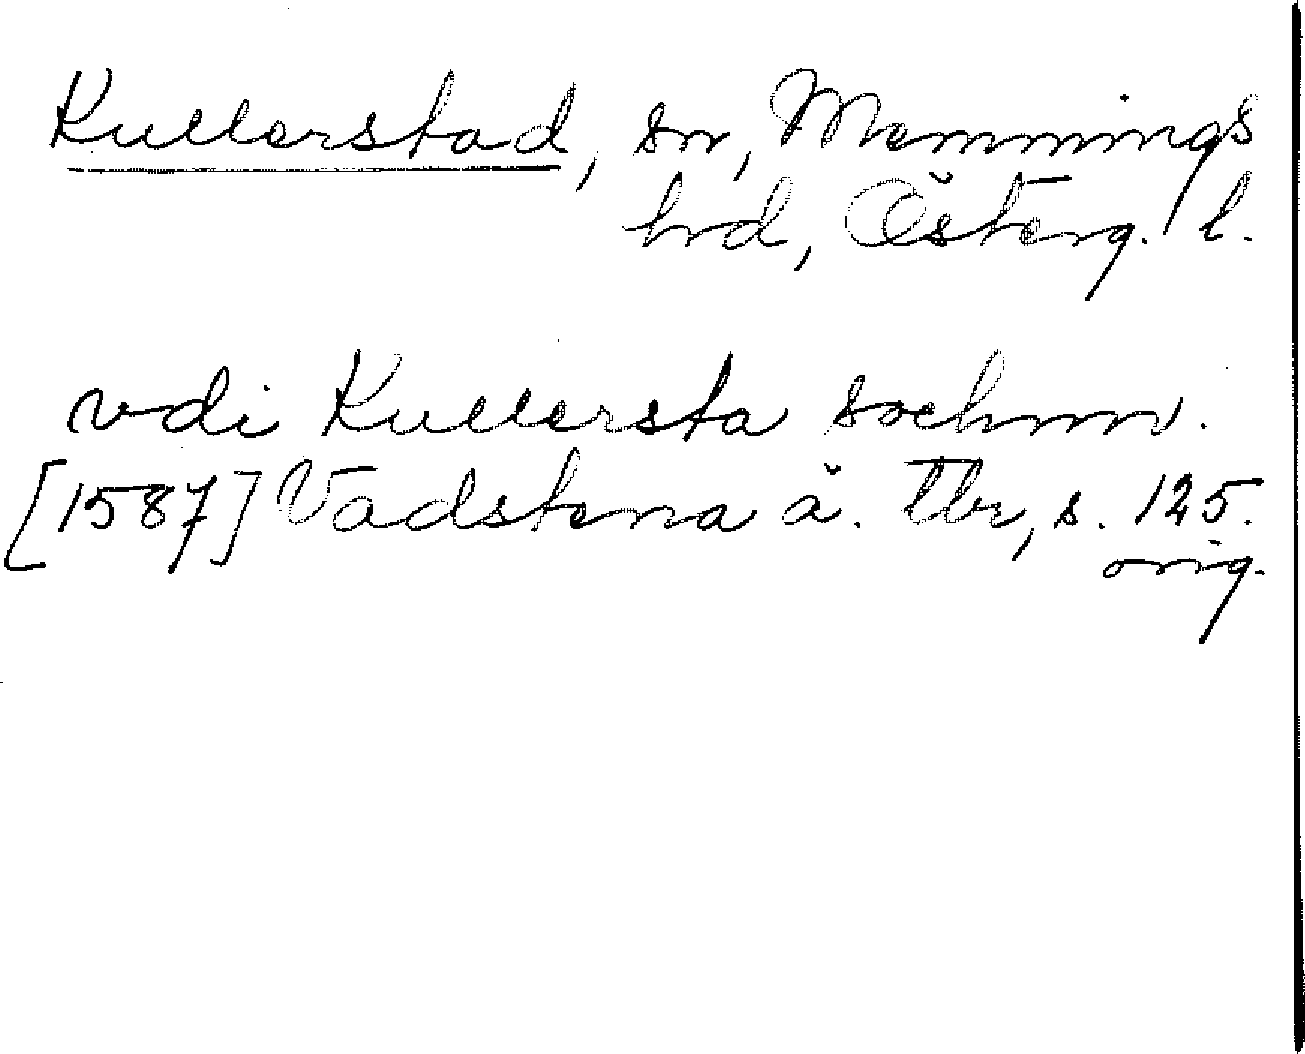 Kullerstad, sn, Memmings
hrd, Österg. l.
vdi Kullersta sochnn.
[1587] Vadstena ä. tbr, s. 125.
orig.